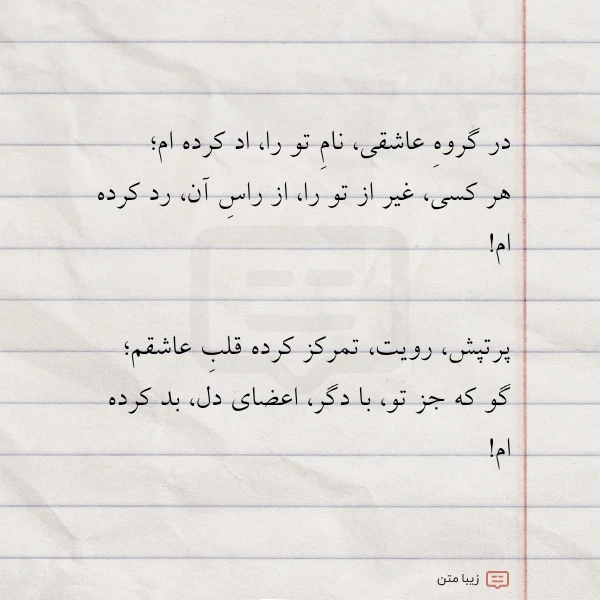 در گروهِ عاشقی، نامِ تو را، اد کرده ام؛
هر کسی، غیر از تو را، از راسِ آن، رد کرده
ام!
پرتپش، رویت، تمرکز کرده قلبِ عاشقم؛
گو که جز تو، با دگر، اعضای دل، بد کرده
ام!
زیبا متن